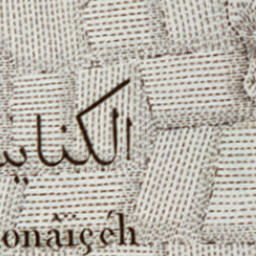 الكناي
onâïçéh